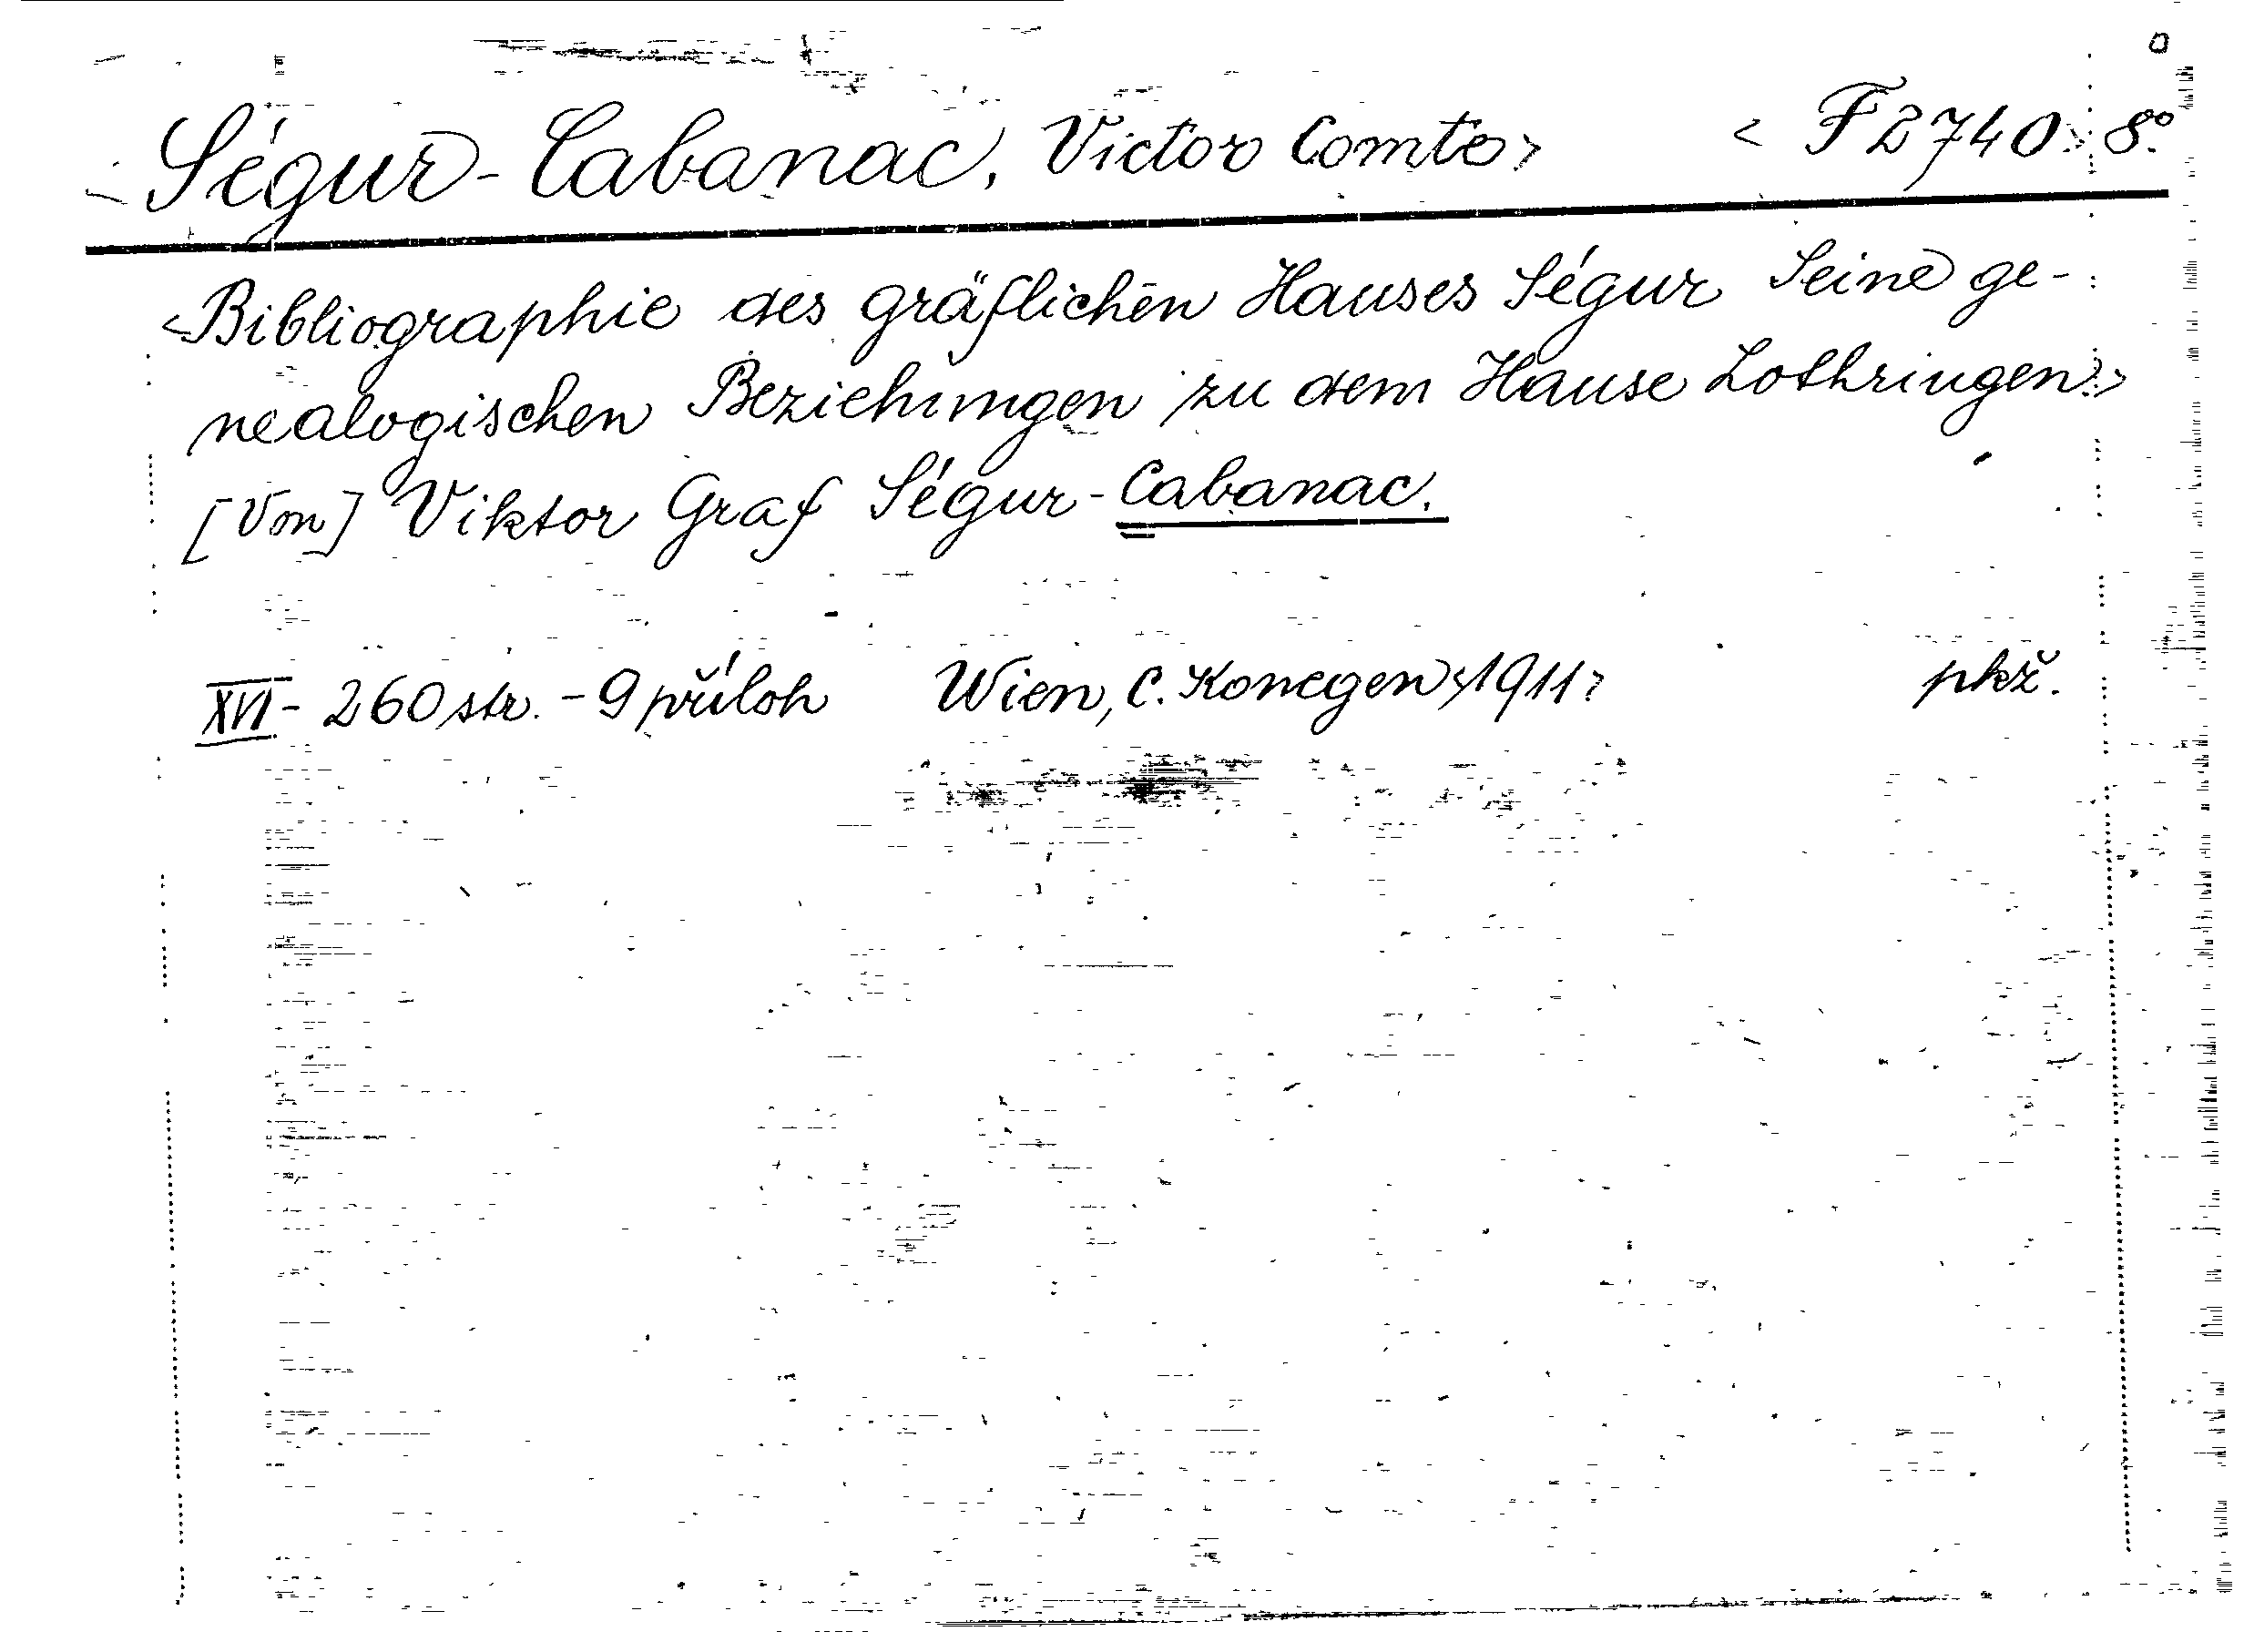 <Ségur-Cabanac, Victor Comte> <F 2740> 8°
<Bibliographie des gräflichen Hauses Ségur Seine ge-
nealogischen Beziehungen zu dem Hause Lothringen.>
[Von] Viktor Graf Ségur-Cabanac.
XVI - 260 str. - 9 příloh Wien, C. Konegen <1911> pkž.